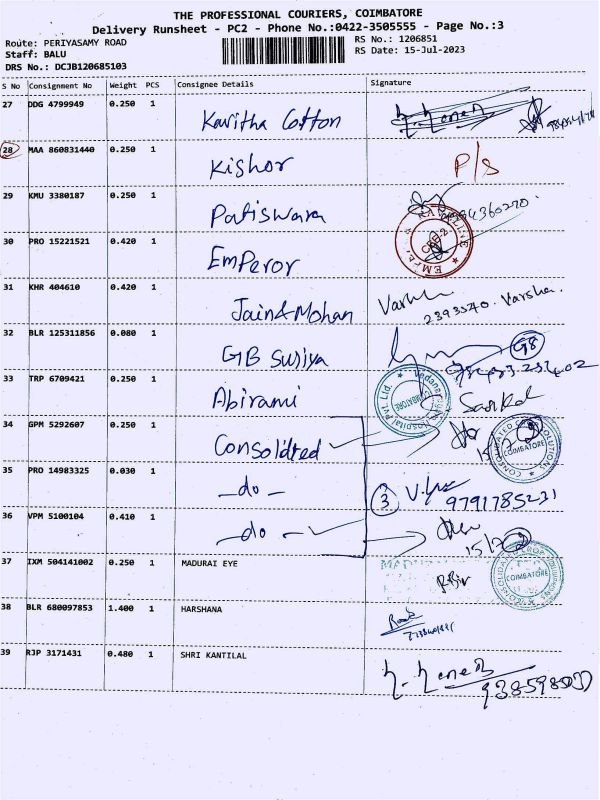 THE PROFESSIONAL COURIERS, COIMBATORE
Delivery Runsheet - PC2 - Phone No.:0422-3505555 - Page No.:3
Route: PERIYASAMY ROAD
RS No.: 1206851
Staff: BALU
RS Date: 15-Jul-2023
DRS No.: DCJB120685103
S No Consignment No Weight PCS Consignee Details Signature
27 DDG 4799949 0.250 1 Kavitha Cotton
28 MAA 860831440 0.250 1 Kishor P/S
29 KMU 3380187 0.250 1 Patiswara
30 PRO 15221521 0.420 1 EmPeror
31 KHR 404610 0.420 1 Jain & Mohan 2393540. Varsha.
32 BLR 125311856 0.080 1 GB Suriya G8
33 TRP 6709421 0.250 1 Abirami
34 GPM 5292607 0.250 1 Consoldted
35 PRO 14983325 0.030 1 -do- 3 9791785231
36 VPM 5100104 0.410 1 -do- 15/7
37 IXM 504141002 0.250 1 MADURAI EYE
38 BLR 680097853 1.400 1 HARSHANA
39 RJP 3171431 0.480 1 SHRI KANTILAL